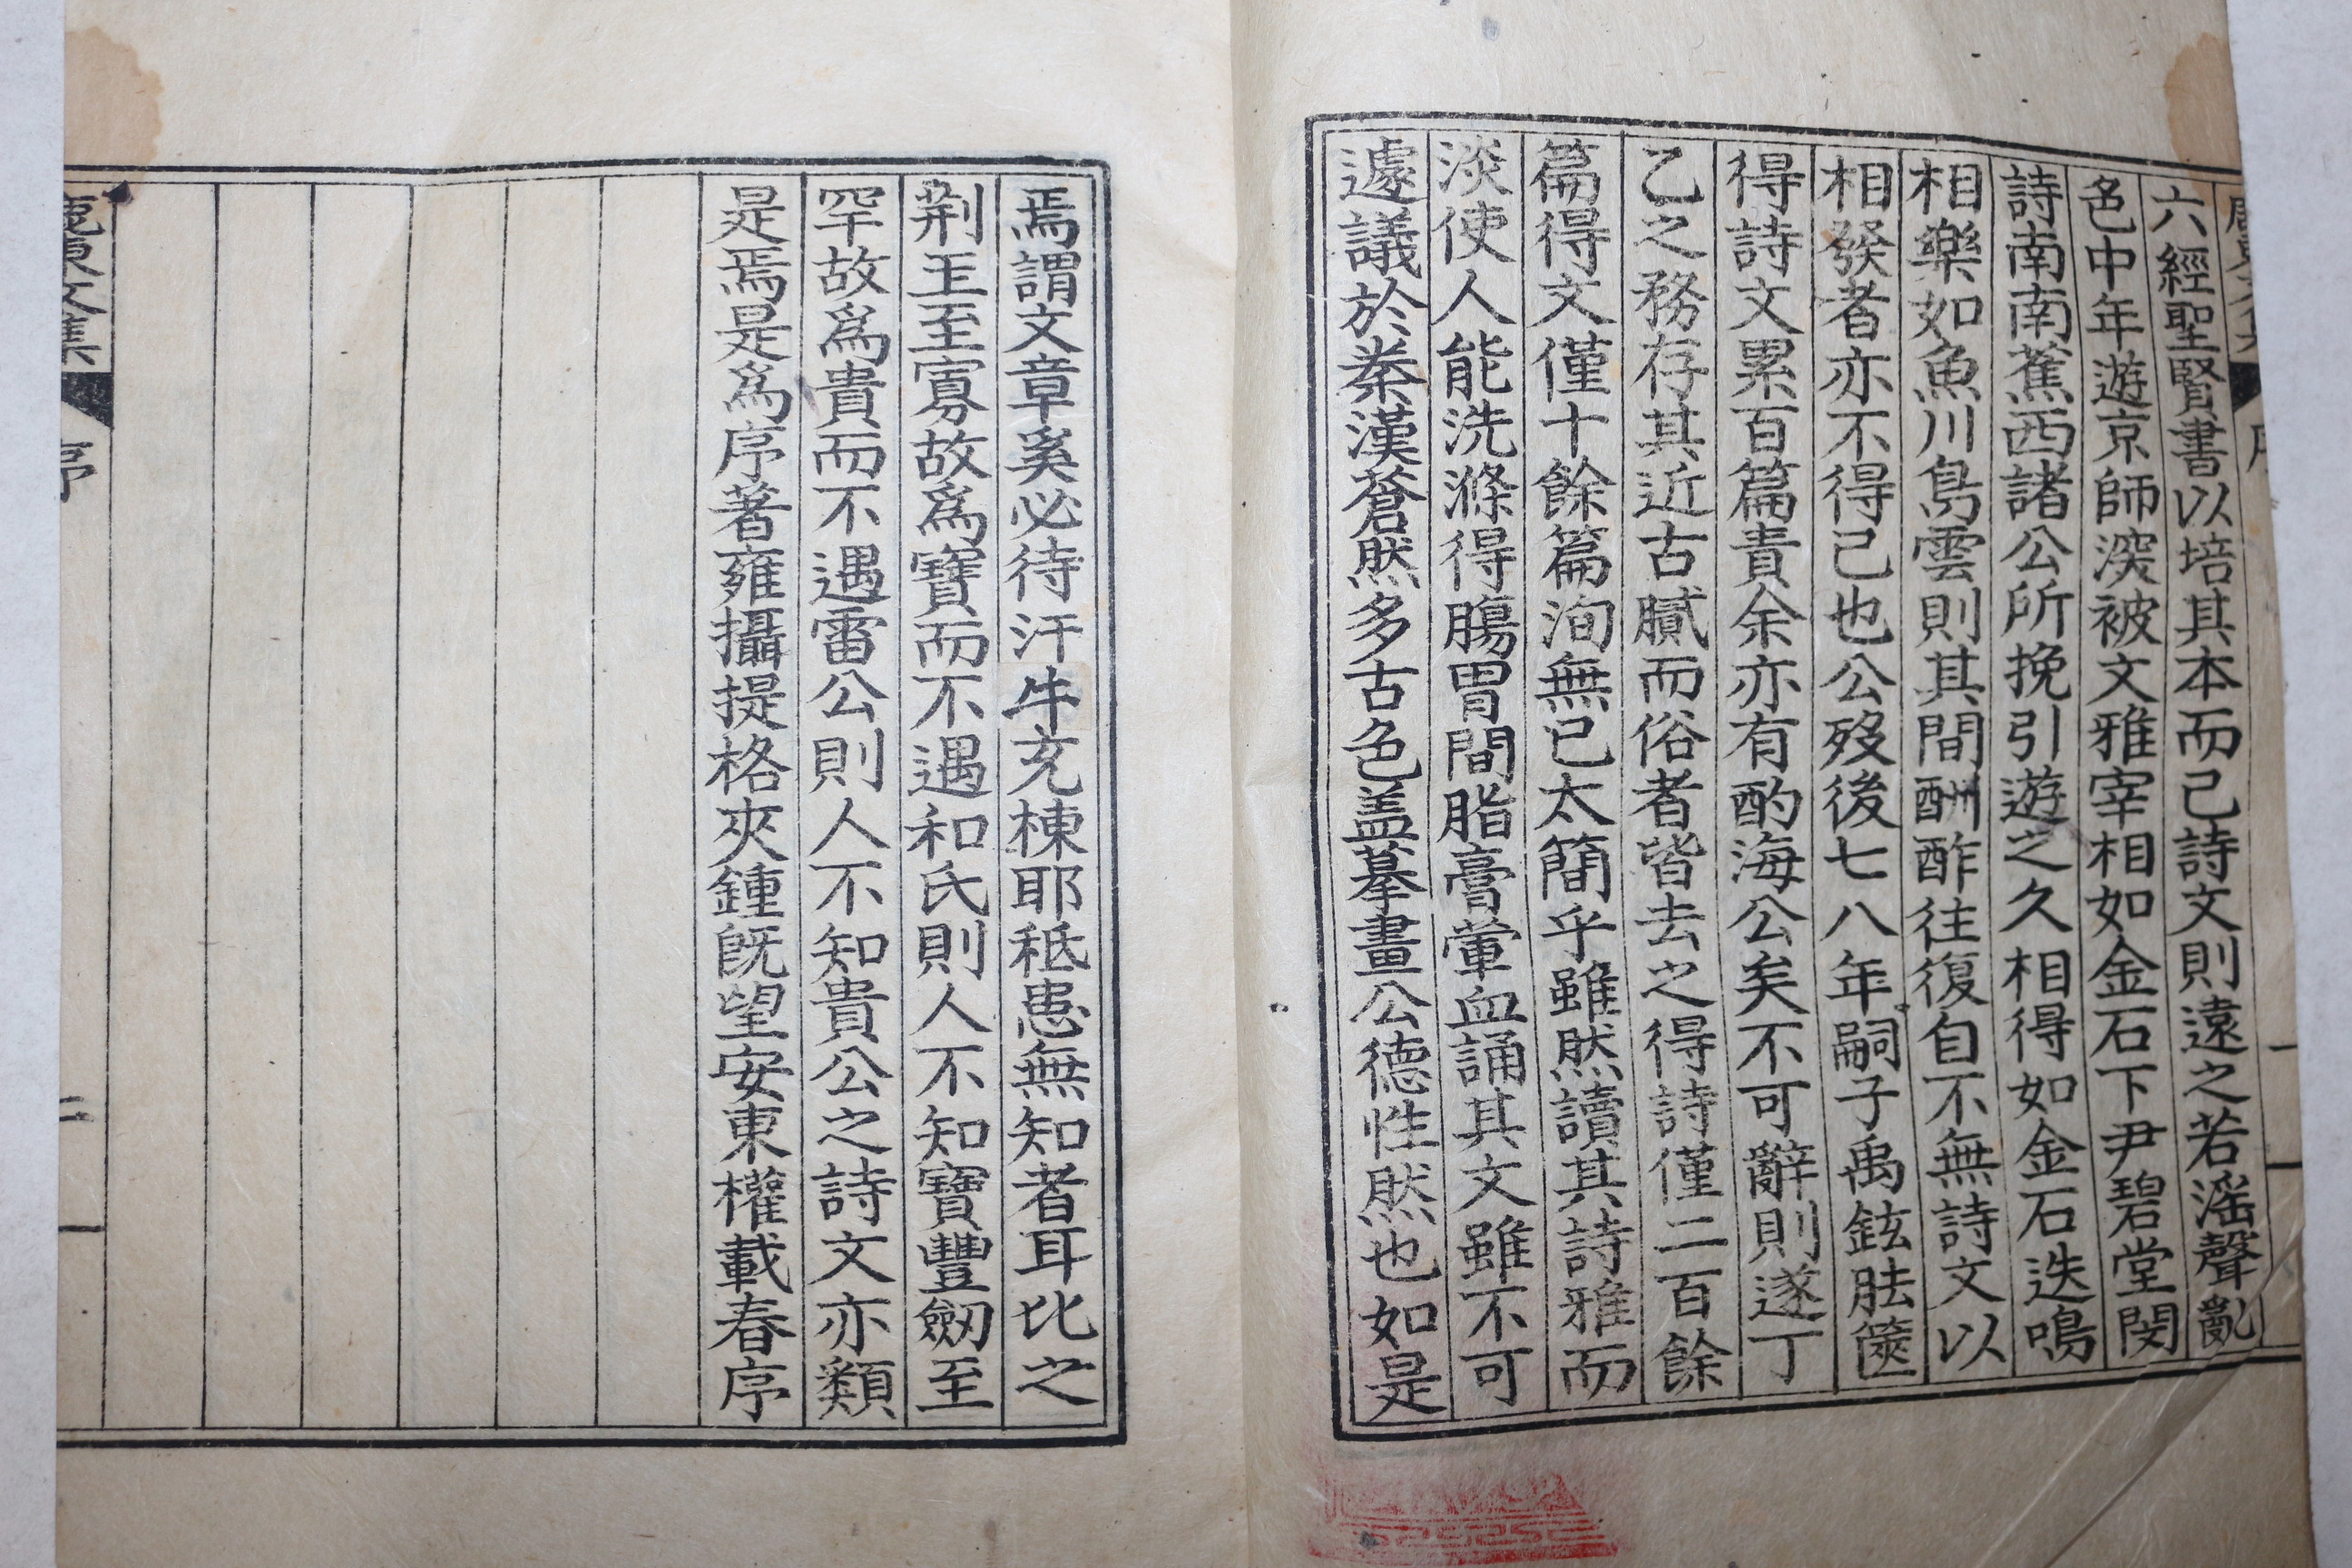 六經聖賢書以培其本而己詩文則遠之若滛聲亂
色中年遊京師深被文雅宰相如金石下尹碧堂閔
詩南南蕉西諸公所挽引遊之久相得如金石迭鳴
相樂如魚川鳥雲則其間酬酢往復自不無詩文以
相發者亦不得己也公歿後七八年嗣子禹鉉胠篋
得詩文累百篇責余亦有酌海公矣不可辭則遂丁
乙之務存其近古膩而俗者皆去之得詩僅二百餘
篇得文僅十餘篇洵無已太簡乎雖然讀其詩雅而
淡使人能洗滌得腸胃間脂膏葷血誦其文雖不可
遽議於秦漢蒼然多古色盖摹畫公德性然也如是
焉謂文章奚必待汗牛充棟耶秪患無知者耳比之
荆玉至寡故爲寶而不遇和氏則人不知寶豐劒至
罕故爲貴而不遇雷公則人不知貴公之詩文亦類
是焉是爲序著雍攝提格夾鍾旣望安東權載春序
東文集
序
二